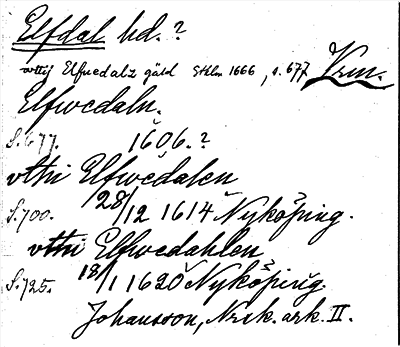 Elfdal hd. ?
uttj Elfuedalz gäld Sthlm 1666, s. 677 Vrm.
Elfwedaln.
S. 677. 1606. ?
vthi Elfwedalen
S. 700. 28/12 1614 Nyköping.
vthi Elfwedahlen
S. 725. 18/1 1620 Nyköping.
Johansson, Nrsk. ark. II.